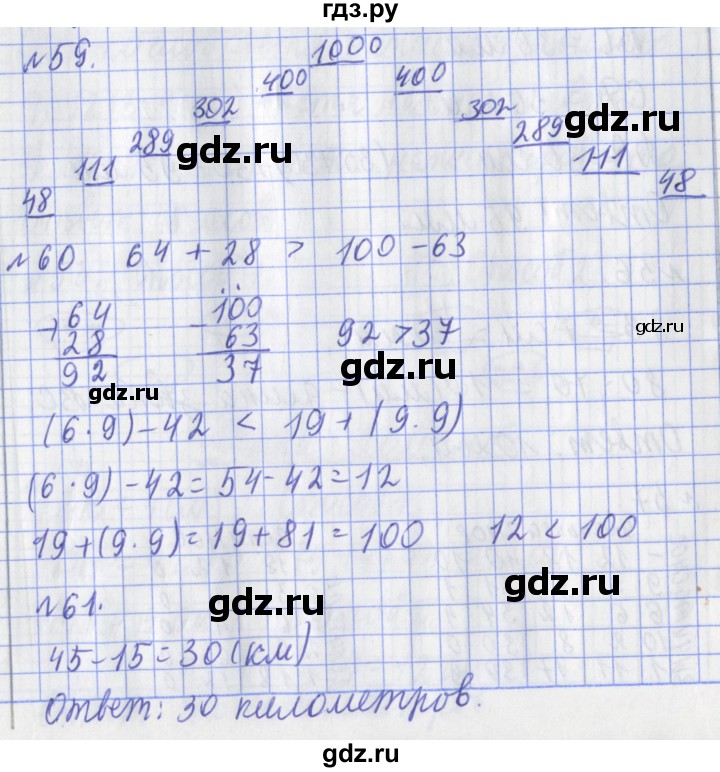 гдз.ру
№59.
48 111 289 302 400 1000 400 302 289 111 48
gdz.ru gdz.ru
№60 64 + 28 > 100 - 63
+64 -100
28 63 92 > 37
gdz.ru
92 37
gdz.ru gdz.ru
(6·9) - 42 < 19 + (9·9)
(6·9) - 42 = 54 - 42 = 12
19 + (9·9) = 19 + 81 = 100 12 < 100
№61.
gdz.ru gdz.ru
45 - 15 = 30 (км)
Ответ: 30 километров.
gdz.ru